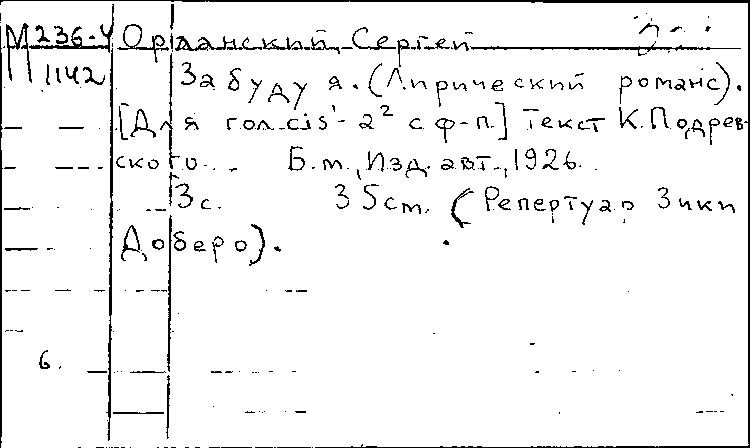 М 236-4 Орланский, Сергей
1142 Забуду я. (Лирический романс).
[Для гол. cis¹- a² с ф-п.] Текст К. Подрев-
ского. Б.м., Изд. авт., 1926.
3 с. 35 cm. (Репертуар Зики
Доберо).
6.